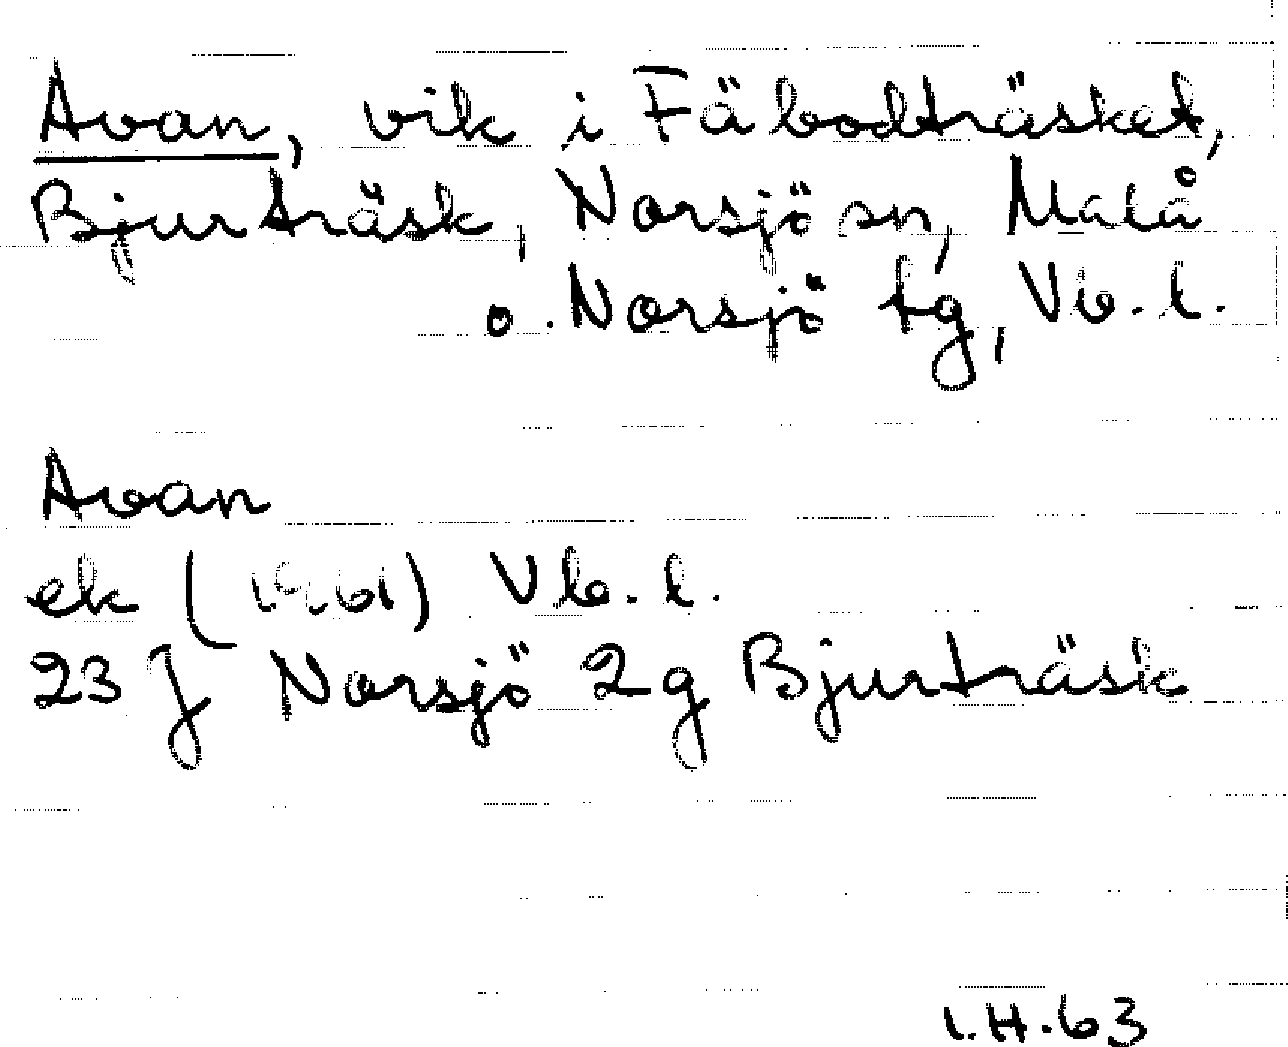 Avan, vik i Fäbodträsket,
Bjurträsk, Norsjö sn, Malå
o. Norsjö tg, Vb. l.
Avan
ek (1961) Vb. l.
23 J Norsjö 2g Bjurträsk
I.H.63